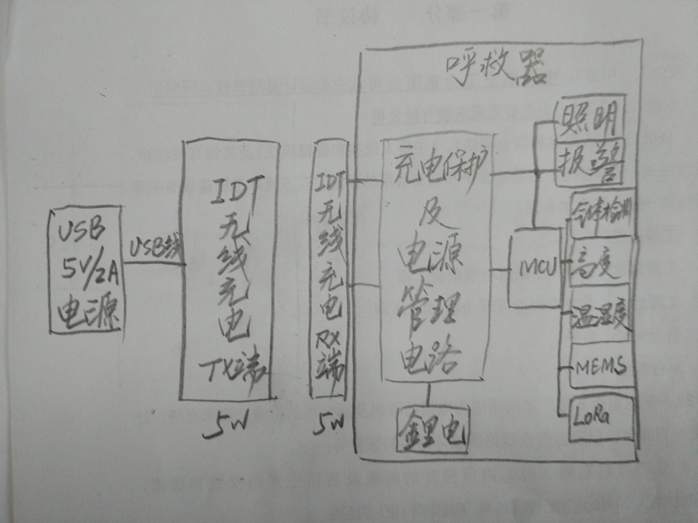 呼救器
USB
5V/2A
电源
USB线
IDT
无
线
充
电
TX端
5W
IDT
无
线
充
电
RX
端
5W
充电保护
及
电源
管理
电路
锂电
MCU
照明
报警
高度
温湿度
MEMS
LoRa